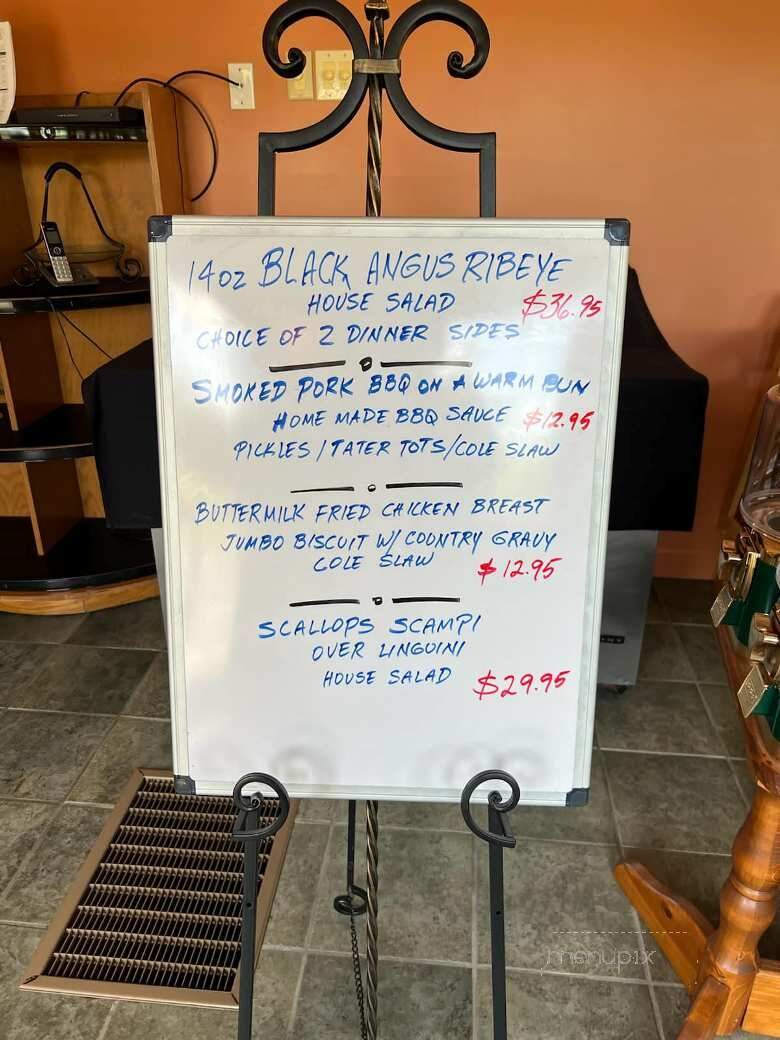 14oz BLACK ANGUS RIBEYE
HOUSE SALAD $36.95
CHOICE OF 2 DINNER SIDES
SMOKED PORK BBQ ON A WARM BUN
HOME MADE BBQ SAUCE $12.95
PICKLES / TATER TOTS / COLE SLAW
BUTTERMILK FRIED CHICKEN BREAST
JUMBO BISCUIT W/ COUNTRY GRAVY
COLE SLAW $12.95
SCALLOPS SCAMPI
OVER LINGUINI
HOUSE SALAD $29.95
menupix